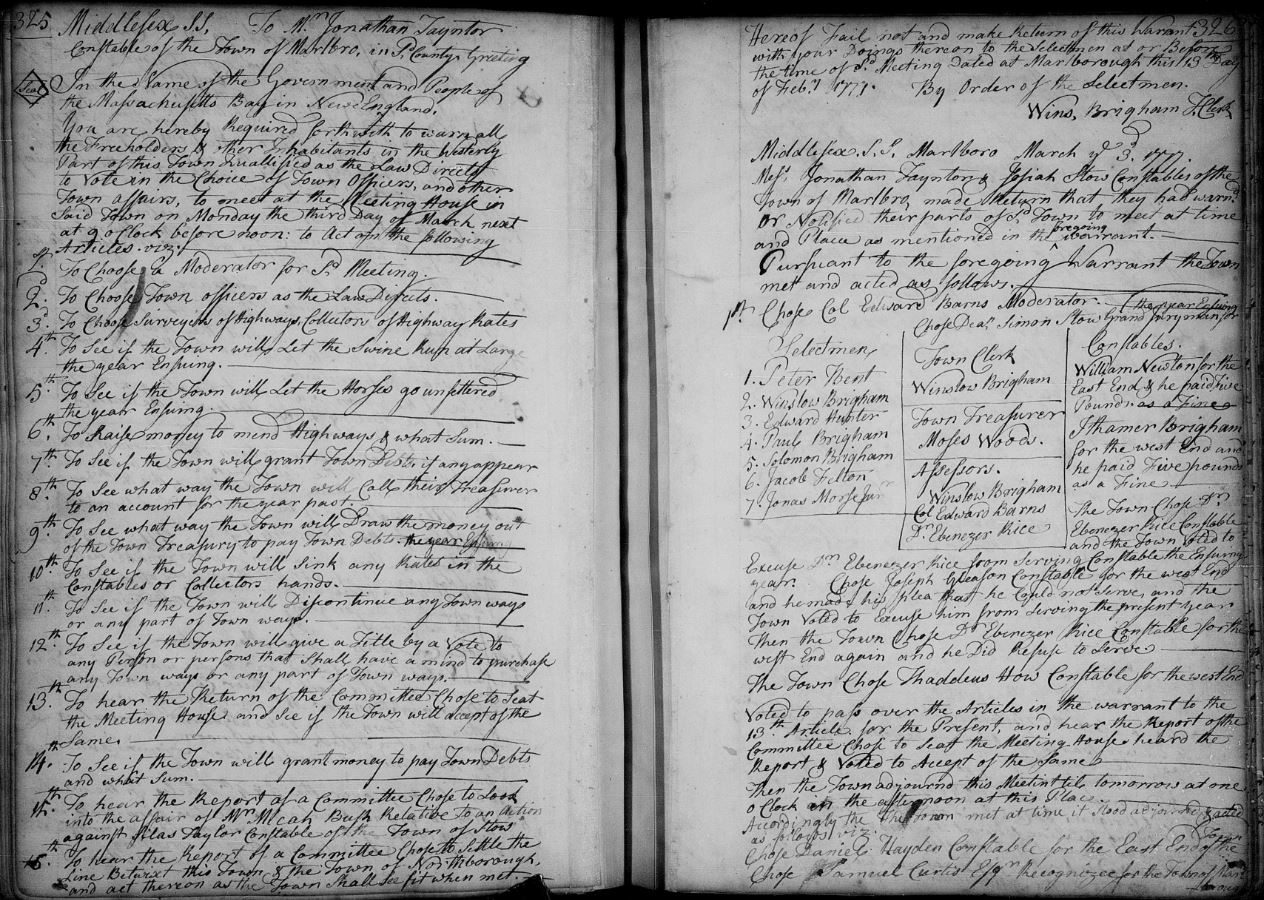 325
Middlesex SS. To Mr Jonathan Tayntor
Constable of the Town of Marlbro, in Sd County, Greeting
Seal
In the Name of the Government and People of
the Massachusetts Bay in New England.
You are hereby Required forthwith to warn all
the Freeholders & other Inhabitants in the Westerly
Part of this Town Quallified as the Law Directs
to Vote in the Choice of Town Officers, and other
Town affairs, to meet at the Meeting House in
Said Town on Monday the third Day of March next
at 9 o Clock before noon: to Act on the following
Articles. viz:
To Choose a Moderator for Sd Meeting.
2d. To Choose Town officers as the Law Directs.
3d. To Choose Surveyors of Highways, Collectors of Highway Rates
4th. To See if the Town will Let the Swine Run at Large
the year Ensuing.
5th. To See if the Town will Let the Horses go unfettered
the year Ensuing.
6th. To Raise money to mend Highways, & what Sum.
7th. To See if the Town will grant Town Debts if any appear
8th. To See what way the Town will Call their Treasurer
to an account for the year past
9th. To See what way the Town will Draw the money out
of the Town Treasury to pay Town Debts the year Ensuing
10th. To See if the Town will Sink any Rates in the
Constables or Collectors hands.
11th. To See if the Town will Discontinue any Town ways
or any part of Town ways.
12th. To See if the Town will give a Title by a Vote to
any Person or persons that Shall have a mind to purchase
any Town ways or any part of Town ways.
13th. To hear the Return of the Committee Chose to Seat
the Meeting House and See if the Town will accept of the
Same.
14th. To See if the Town will grant money to pay Town Debts
and what Sum.
15th. To hear the Report of a Committee Chose to Look
into the affair of Mr Micah Bush Relative to an action
against Silas Taylor Constable of the Town of Stow
16th. To hear the Report of a Committee Chose to Settle the
Line Betwixt this Town & the Town of Northborough,
and act thereon as the Town Shall See fit when met.
326
Hereof Fail not and make Return of this Warrant
with your Doings thereon to the Selectmen at or Before
the time of Sd Meeting Dated at Marlborough this 13 Day
of Feby 1777. By Order of the Selectmen.
Wins. Brigham T. Clerk
Middlesex. S.S. Marlboro March ye 3d. 1777.
Mesrs Jonathan Tayntor & Josiah Stow Constables of the
Town of Marlbro, made Return that they had warnd
or Notified their parts of Sd Town to meet at time
and Place as mentioned in the foregoing warrant.
Pursuant to the foregoing Warrant the Town
met and acted as follows.
1st. Chose Col Edward Barns Moderator. the year Ensuing
Chose Dean Simon Stow Grand Juryman for
Selectmen
1. Peter Bent
2. Winslow Brigham
3. Edward Hunter
4. Paul Brigham
5. Solomon Brigham
6. Jacob Felton
7. Jonas Morse Jur
Town Clerk
Winslow Brigham
Town Treasurer
Moses Woods.
Assessors.
Winslow Brigham
Col Edward Barns
Dn Ebenezer Rice
Constables.
William Newton for the
East End, & he paid five
Pounds as a Fine
Ithamer Brigham
for the west End and
he paid Five pounds
as a Fine
The Town Chose Dn
Ebenezer Rice Constable
and the Town Voted to
Excuse Dn Ebenezer Rice from Serving Constable the Ensuing
year. Chose Joseph Gleason Constable for the west End
and he made his plea that he Could not Serve, and the
Town Voted to Excuse him from Serving the present year
Then the Town Chose Dn Ebenezer Rice Constable for the
west End again and he Did Refuse to Serve
The Town Chose Thaddeus How Constable for the west End
Voted to pass over the Articles in the warrant to the
13th Article for the Present, and hear the Report of the
Committee Chose to Seat the Meeting House, heard the
Report & Voted to Accept of the Same
Then the Town adjournd this Meetint til tomorrow at one
o Clock in the afternoon at this Place.
Accordingly the Town met at time it Stood adjourned & acted
as follows viz.
Chose Daniel Hayden Constable for the East End of the Town
Chose Samuel Curtis Esqr Recognozee for the Town of Marl
borough